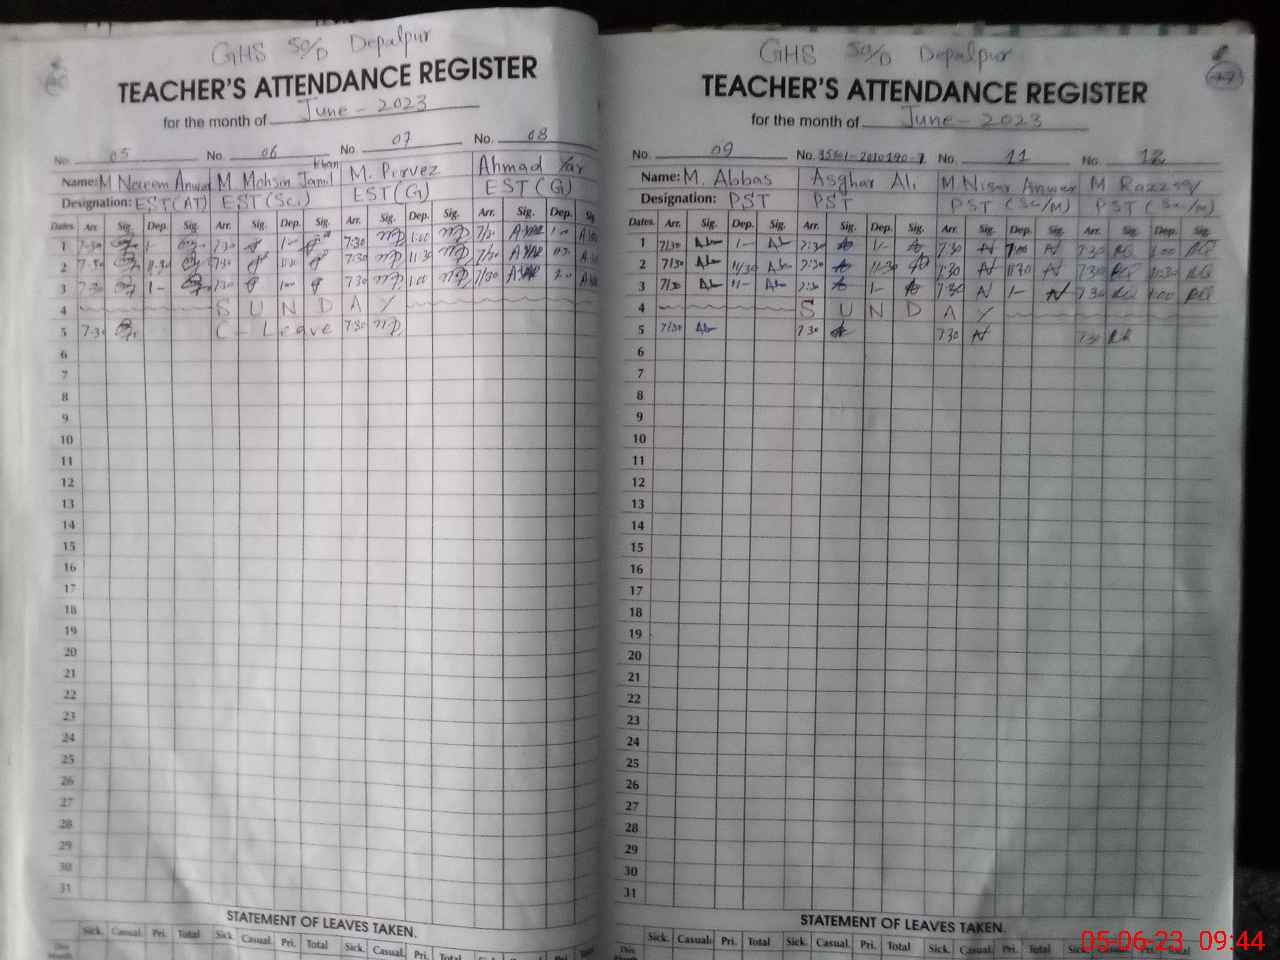 GHS 50/D Depalpur
TEACHER'S ATTENDANCE REGISTER
for the month of June - 2023
No. 05 No. 06 No. 07 No. 08
Name: M Naeem Anwar M Mohsin Jamil Khan M. Pervez Ahmad Yar
Designation: EST(AT) EST(Sci) EST(G) EST(G)
Dates Arr. Sig. Dep. Sig. Arr. Sig. Dep. Sig. Arr. Sig. Dep. Sig. Arr. Sig. Dep. Sig.
1 7-30 1- 7:30 1- 7:30 1:00 7/30
2 7-30 11-30 7:30 11:30 7:30 11:30 7/30
3 7-30 1- 7:30 1- 7:30 1:00 7/30
4 SUNDAY
5 7-30 C-Leave 7:30
6
7
8
9
10
11
12
13
14
15
16
17
18
19
20
21
22
23
24
25
26
27
28
29
30
31
STATEMENT OF LEAVES TAKEN.
Sick. Casual. Pri. Total Sick. Casual. Pri. Total Sick. Casual.
GHS 50/D Depalpur
TEACHER'S ATTENDANCE REGISTER
for the month of June - 2023
No. 09 No. No. 11 No. 12
Name: M. Abbas Asghar Ali M Nisar Anwer M Razzaq
Designation: PST PST PST (Sc/M) PST (Sc/M)
Dates. Arr. Sig. Dep. Sig. Arr. Sig. Dep. Sig. Arr. Sig. Dep. Sig. Arr. Sig. Dep. Sig.
1 7/30 1- 7:30 1- 7:30 1:00 7:30 1:00
2 7/30 11/30 7:30 11:30 7:30 11:30 7:30 11:30
3 7/30 1- 7:30 1- 7:30 1- 7:30 1:00
4 SUNDAY
5 7/30 7:30 7:30 7:30
6
7
8
9
10
11
12
13
14
15
16
17
18
19
20
21
22
23
24
25
26
27
28
29
30
31
STATEMENT OF LEAVES TAKEN.
Sick. Casual. Pri. Total Sick. Casual. Pri. Total Sick. Casual. Pri. Total
05-06-23 09:44